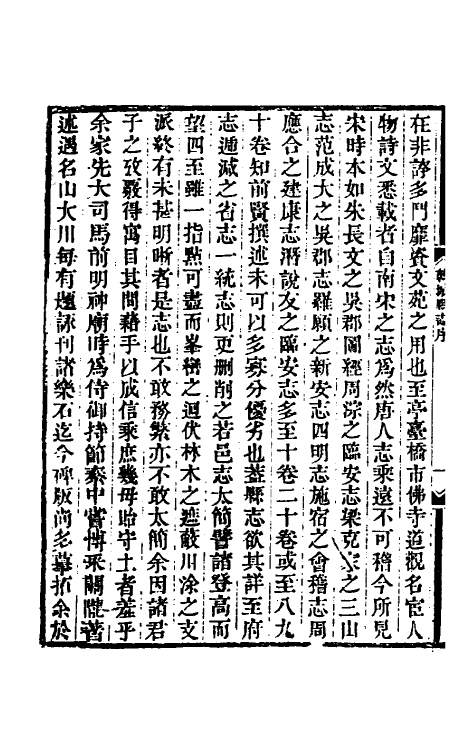 在非誇多鬥靡資文苑之用也至亭臺橋市佛寺道觀名宦人
物詩文悉載者自南宋之志爲然唐人志乘遠不可稽今所見
宋時本如朱長文之吳郡圖經周淙之臨安志梁克家之三山
志范成大之吳郡志羅願之新安志四明志施宿之會稽志周
應合之建康志潛說友之臨安志多至十卷二十卷或至八九
十卷知前賢撰述未可以多寡分優劣也蓋縣志欲其詳至府
志遞減之省志一統志則更刪削之若邑志太簡譬諸登高而
望四至雖一指點可盡而峯巒之迴伏林木之遮蔽川涂之支
派終有未甚明晰者是志也不敢務繁亦不敢太簡余因諸君
子之致覈得寓目其間藉手以成信乘庶幾毋貽守土者羞乎
余家先大司馬前明神廟時爲侍御持節秦中嘗博采關隴著
述遇名山大川每有題詠刊諸樂石迄今碑版尚多摹拓余於
縣志序
一